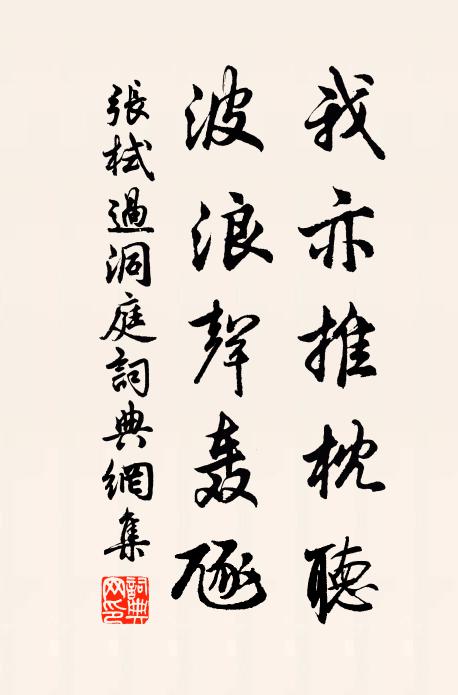 我亦推枕聽
波浪聲轟豗
張栻過洞庭詞典網集
詞典网印